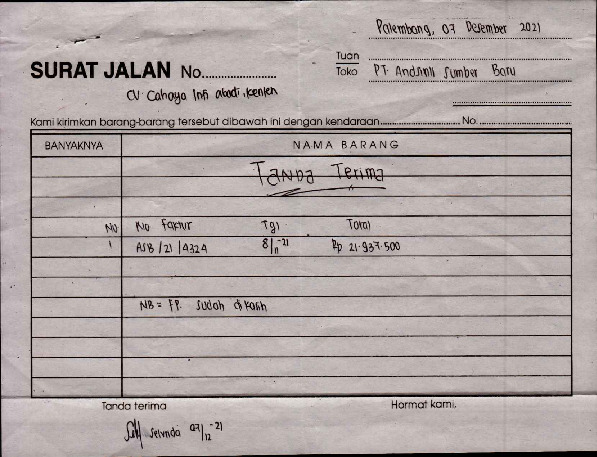 Palembang, 07 Desember 2021
Tuan
Toko PT. Andalan Sumber Baru
SURAT JALAN No..........................
CV Cahaya Inti abadi, Kenten
Kami kirimkan barang-barang tersebut dibawah ini dengan kendaraan.......................... No. ..........................
BANYAKNYA NAMA BARANG
Tanda Terima
No No Faktur Tgl Total
1 ASB/21/4324 8/11-21 Rp 21.937.500
NB = FP. Sudah di kasih
Tanda terima Hormat kami,
07/12-21